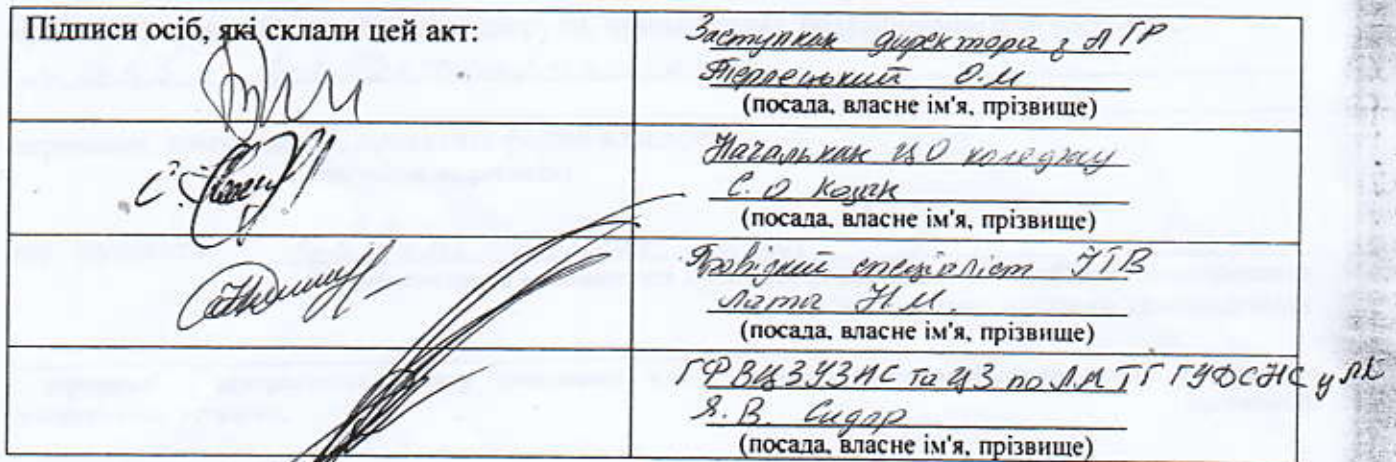 Підписи осіб, які склали цей акт:
Заступник директора з АГР
Терлецький О.М
(посада, власне ім'я, прізвище)
Начальник ЦО коледжу
С. О Коцан
(посада, власне ім'я, прізвище)
Провідний спеціаліст
Лата Н.М.
(посада, власне ім'я, прізвище)
ГФ ВЦЗУЗНС та ЦЗ по
Я.В. Сидор
(посада, власне ім'я, прізвище)